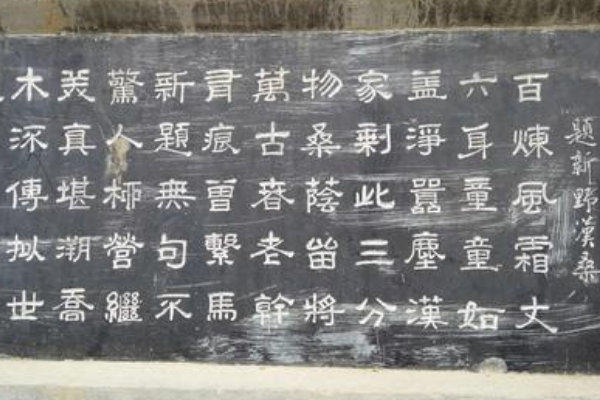 題新野漢桑
百煉風霜丈
六身童童如
盖淨囂塵漢
家剩此三分
物桑蔭留將
萬古春老幹
有痕曾繫馬
新題無句不
驚人柳營繼
美真堪溯喬
木傳拟世